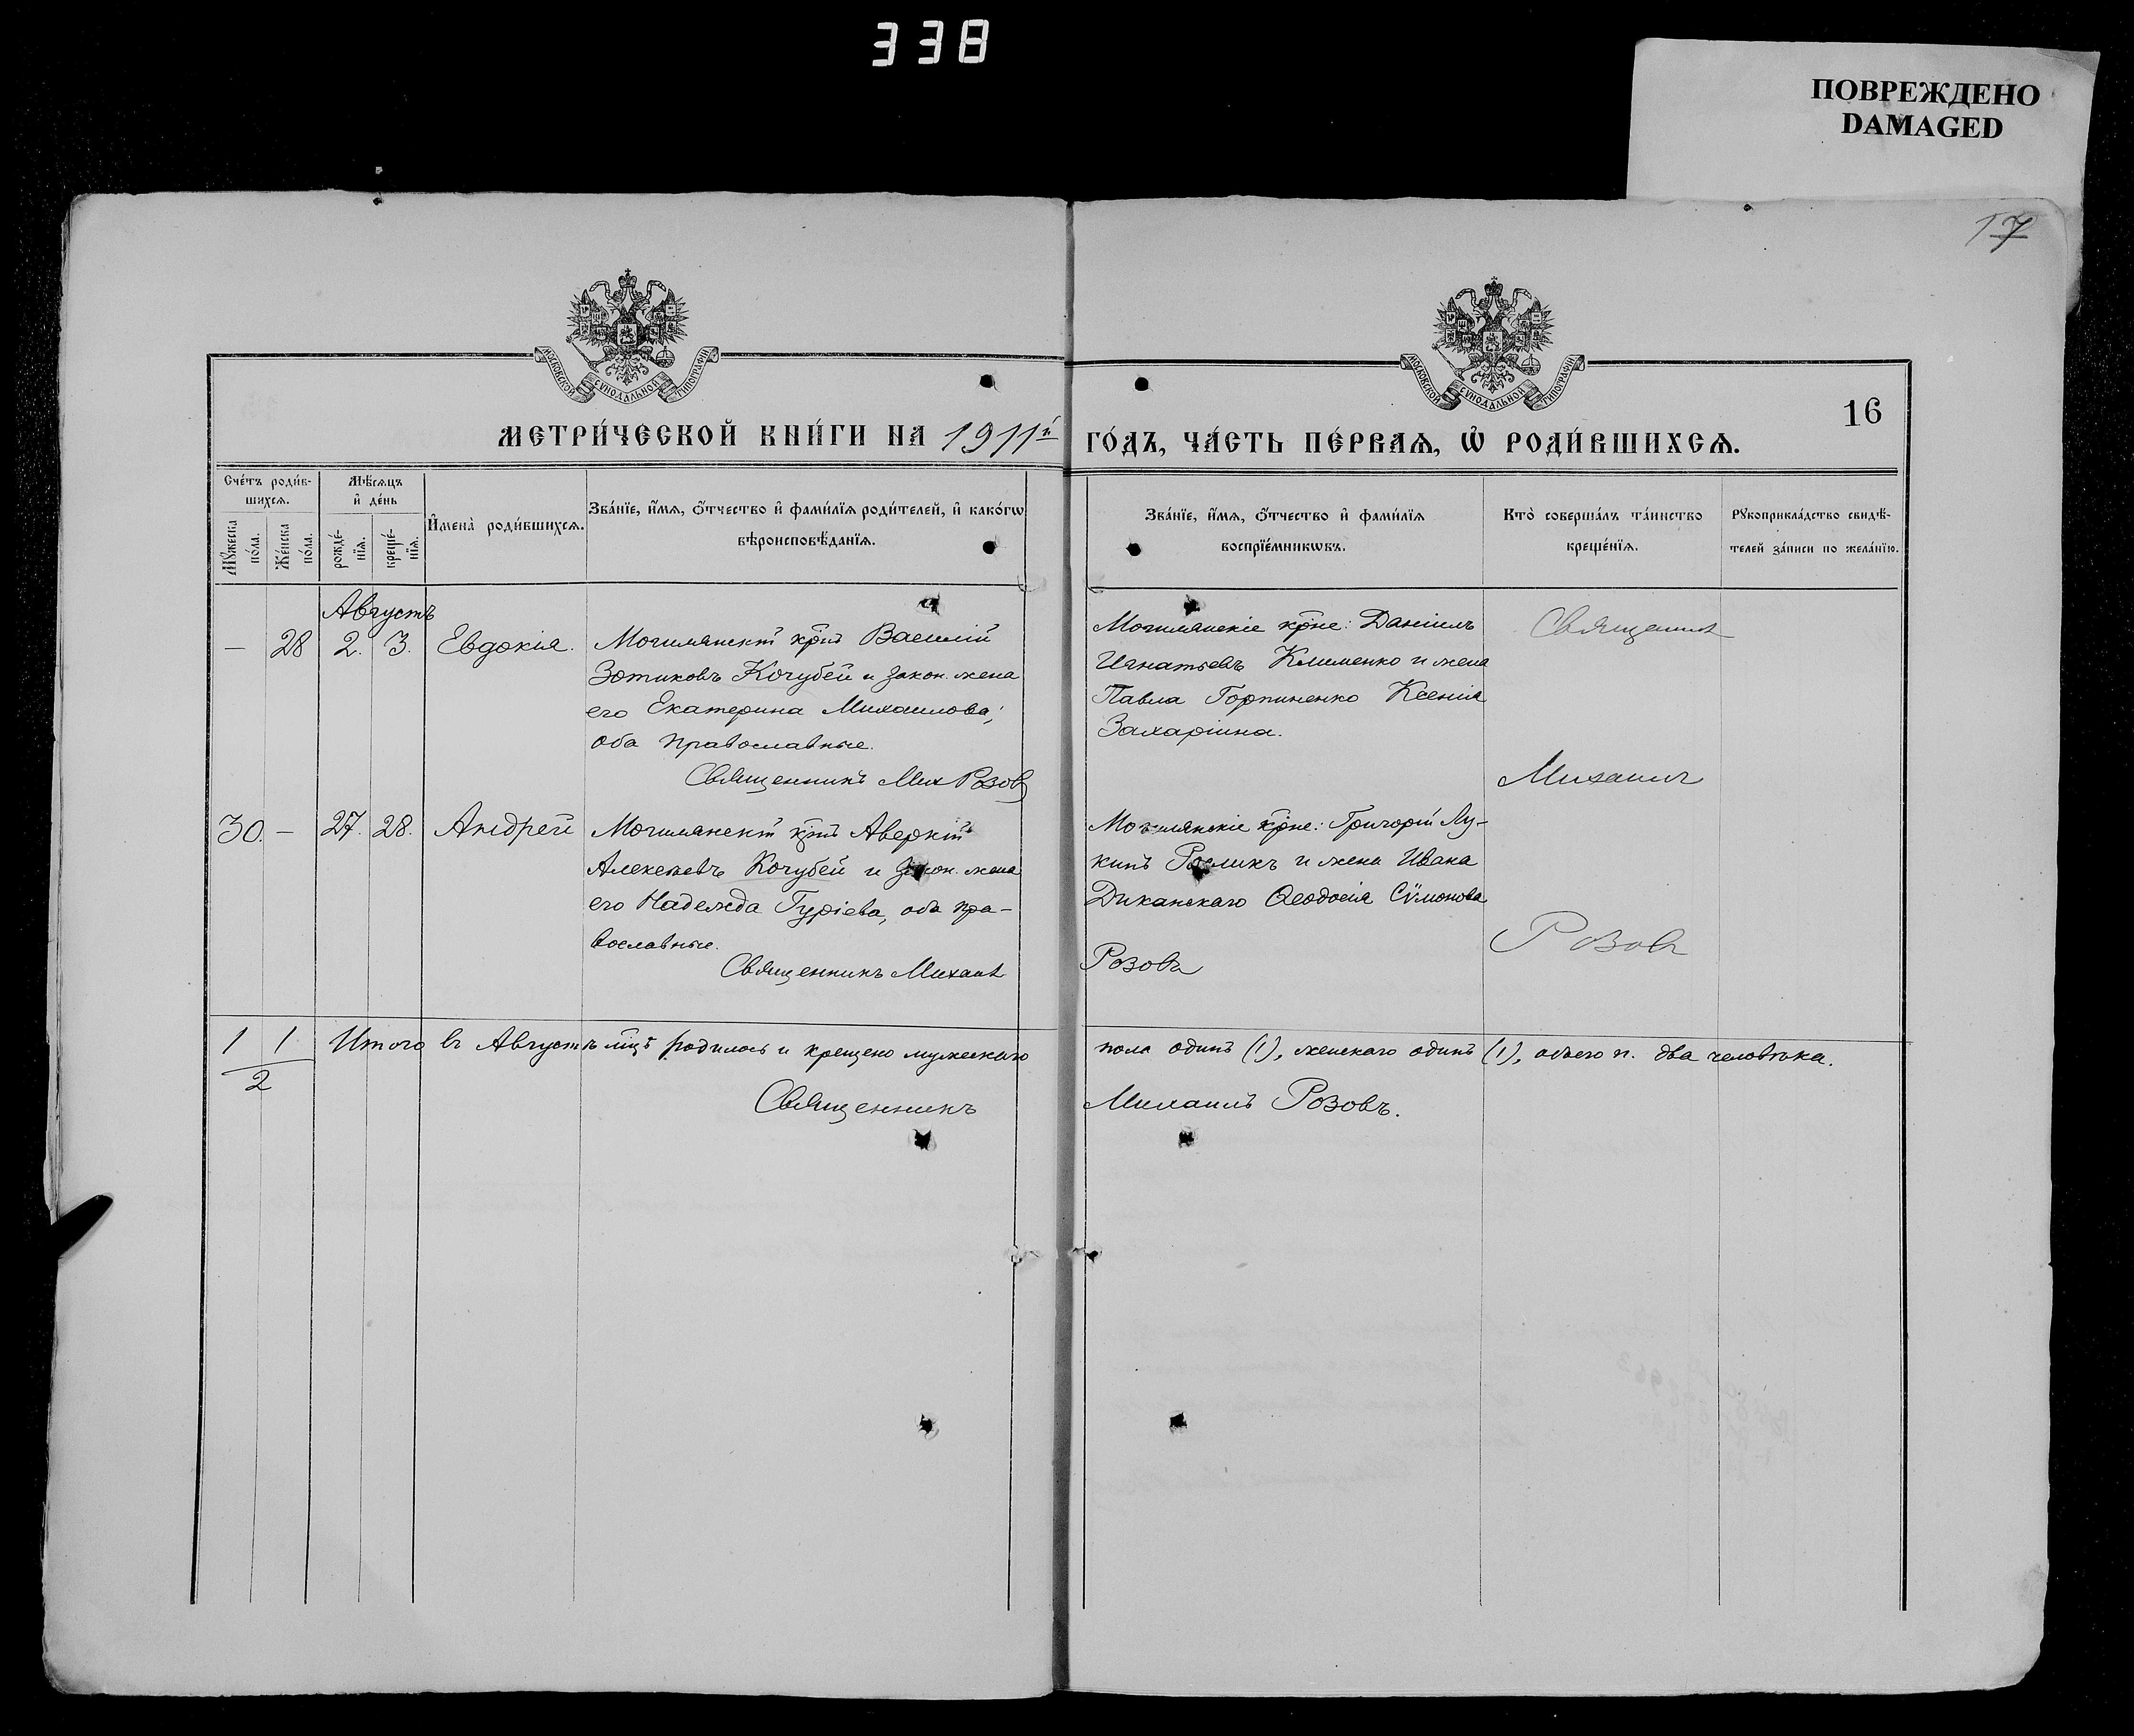 338
ПОВРЕЖДЕНО
DAMAGED
17
МОСКОВСКОЙ СУНОДАЛЬНОЙ ТИПОГРАФІИ
МОСКОВСКОЙ СУНОДАЛЬНОЙ ТИПОГРАФІИ
16
МЕТРИ́ЧЕСКОЙ КНИ́ГИ НА 1911й ГО́ДЪ, ЧА́СТЬ ПЕ́РВАѦ, Ѡ҆ РОДИ́ВШИХСѦ.
Сче́тъ роди́в-
шихсѧ.
Мѣ́сѧцъ
и҆ де́нь
Мꙋ́жеска
по́ла.
Же́нска
по́ла.
рожде́-
нїѧ.
креще́-
нїѧ.
И҆мена̀ роди́вшихсѧ.
Зва́нїе, и҆́мѧ, ѻ҆́тчество и҆ фами́лїѧ роди́телей, и҆ како́гѡ
вѣроисповѣ́данїѧ.
Зва́нїе, и҆́мѧ, ѻ҆́тчество и҆ фами́лїѧ
воспрїе́мникѡвъ.
Кто̀ соверша́лъ та́инство
креще́нїѧ.
Рꙋкоприкла́дство свидѣ́-
телей за́писи по жела́нїю.
Августъ
— 28 2. 3. Евдокія.
Могилянскій крнъ Василій
Зотиковъ Кочубей и закон. жена
его Екатерина Михаилова;
оба православные.
Священникъ Мих Розовъ
Могилянскіе крне: Даніилъ
Игнатьевъ Клименко и жена
Павла Горпиненко Ксенія
Захаріина.
Священникъ
Михаилъ
30. — 27. 28. Андрей
Могилянскій крнъ Аверкій
Алексѣевъ Кочубей и закон. жена
его Надежда Гуріева, оба пра-
вославные.
Священникъ Михаилъ
Могилянскіе крне: Григорій Лу-
кинъ и жена Ивана
Диканскаго Ѳеодосія Сѵмонова
Розовъ
Розовъ
1 1 Итого въ Августѣ мцѣ родилось и крещено мужескаго пола одинъ (1), женскаго одинъ (1), обоего п. два человѣка.
2
Священникъ Михаилъ Розовъ.